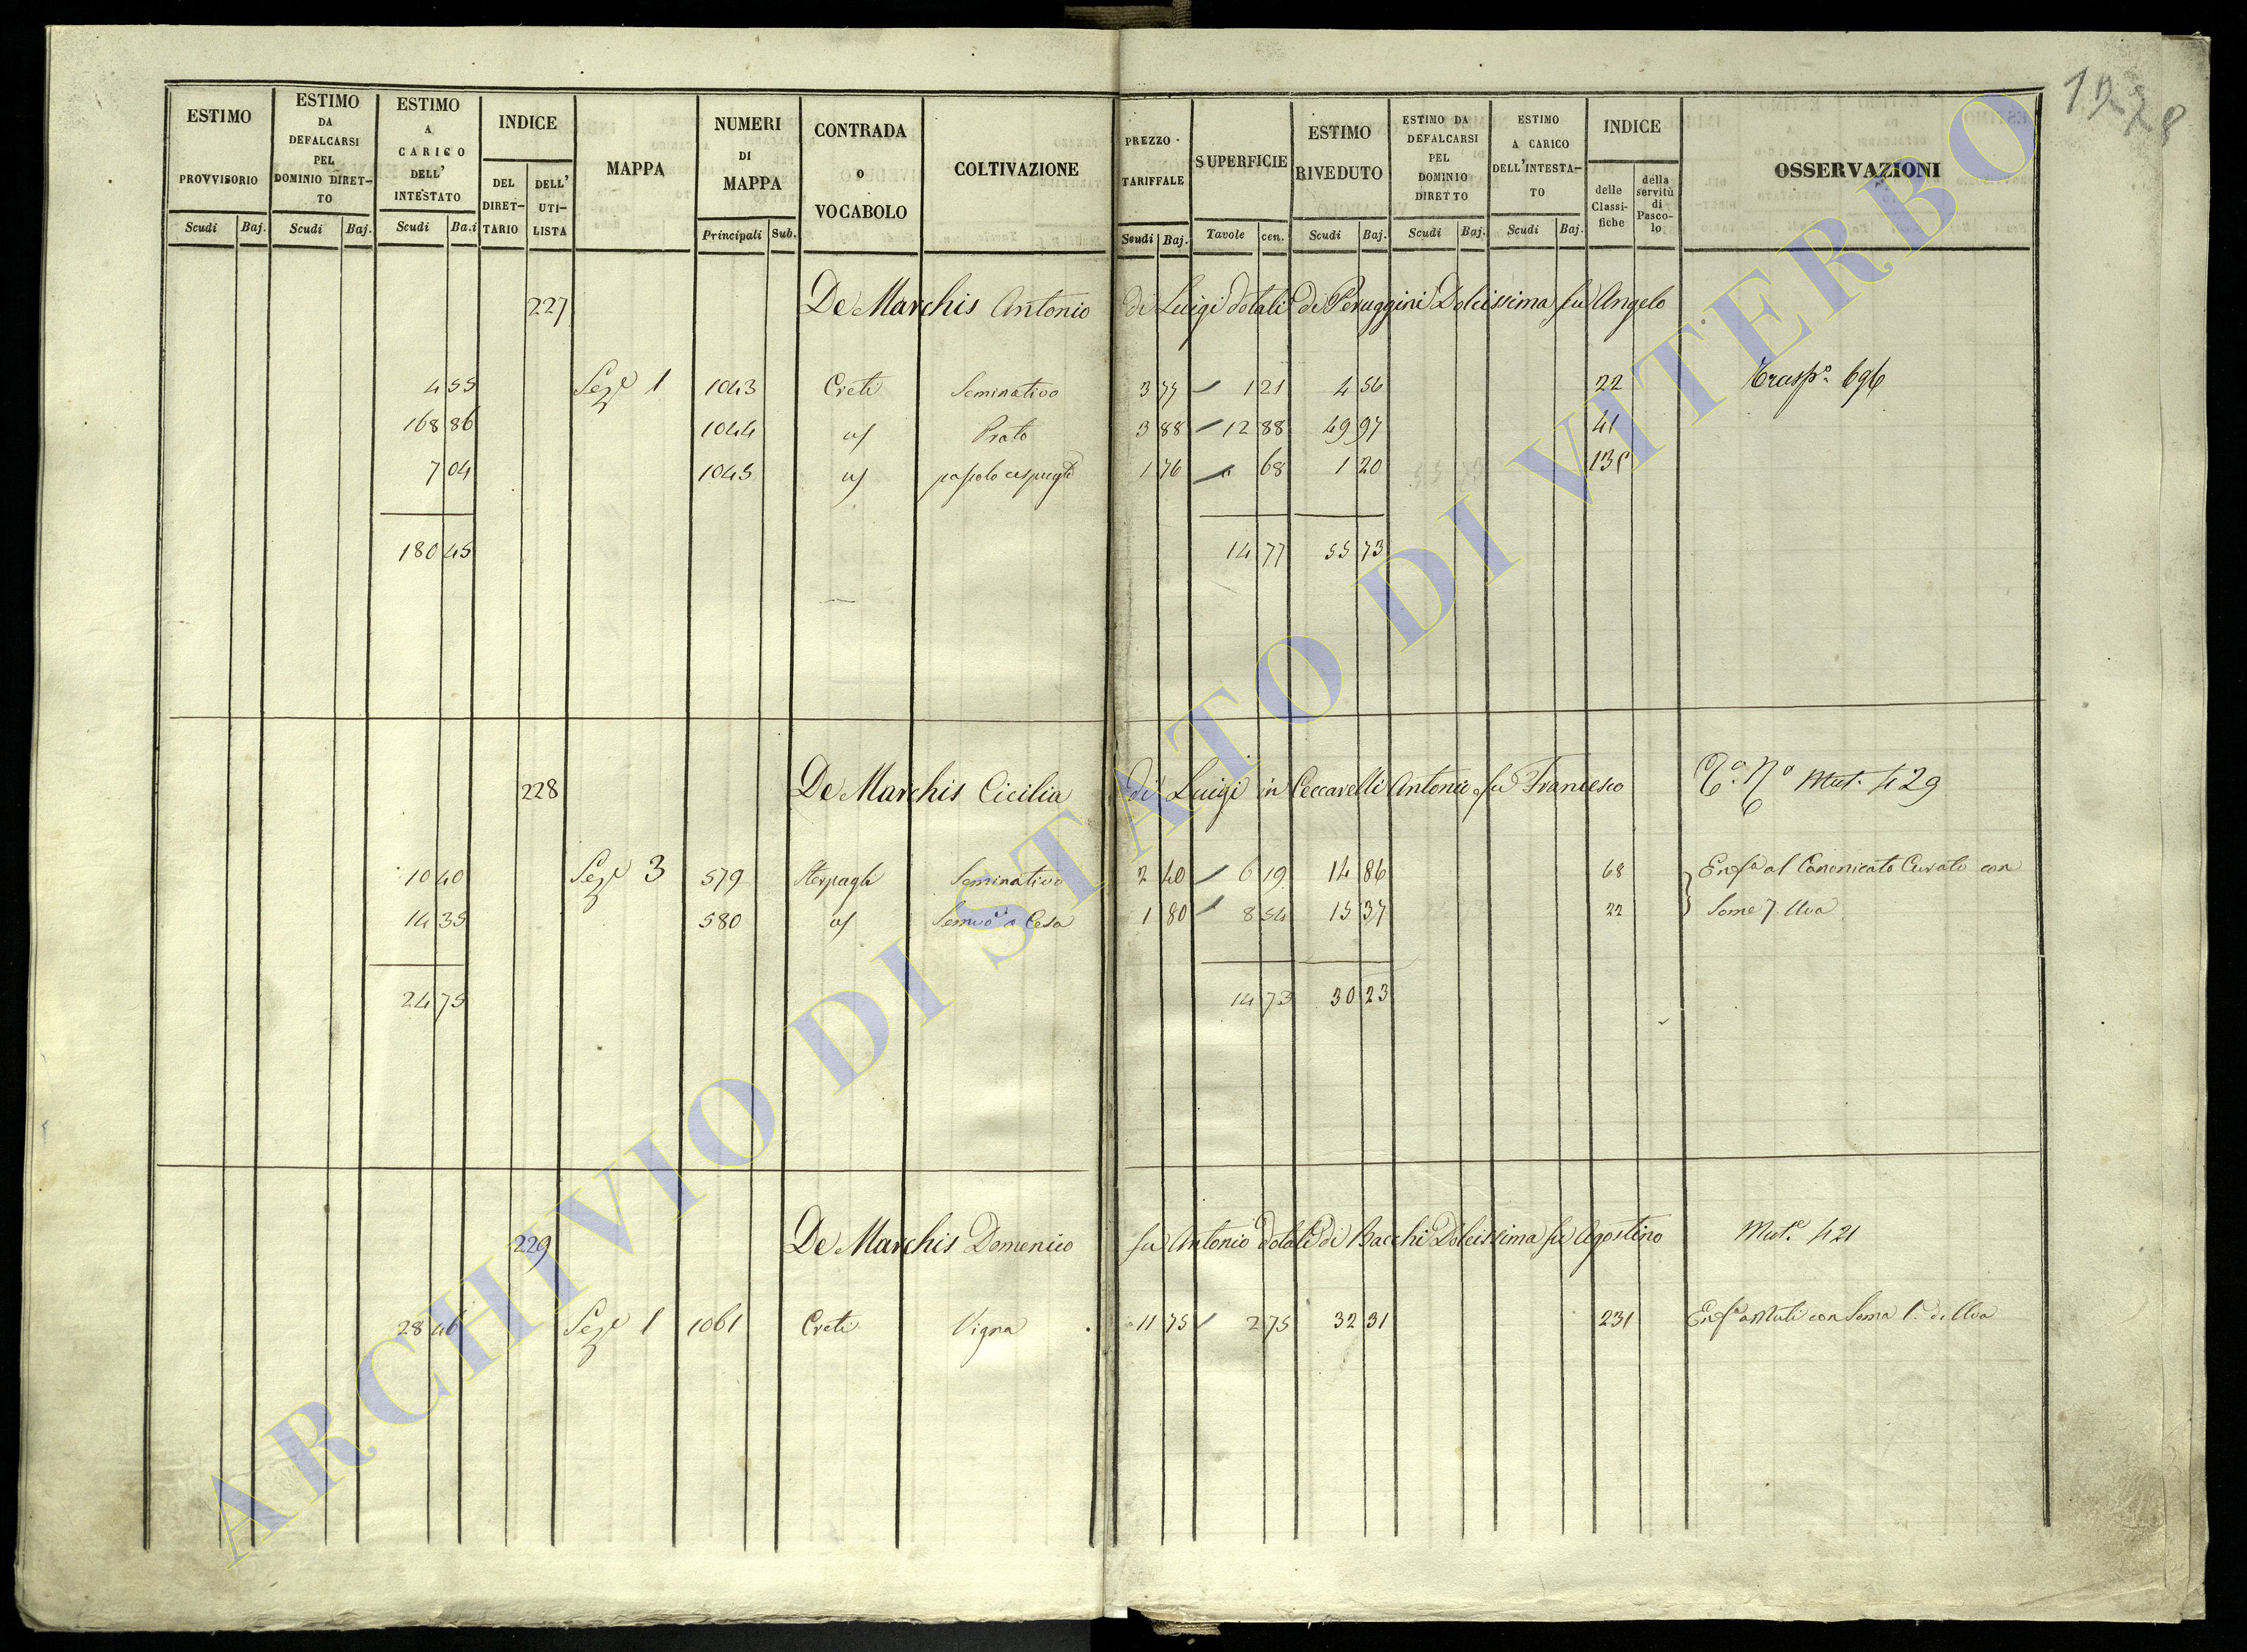 ESTIMO PROVVISORIO Scudi Baj.
ESTIMO DA DEFALCARSI PEL DOMINIO DIRET-TO Scudi Baj.
ESTIMO A CARICO DELL' INTESTATO Scudi Ba.i
INDICE DEL DIRET-TARIO DELL' UTI-LISTA
MAPPA
NUMERI DI MAPPA Principali Sub.
CONTRADA o VOCABOLO
COLTIVAZIONE
PREZZO TARIFFALE Scudi Baj.
SUPERFICIE Tavole cen.
ESTIMO RIVEDUTO Scudi Baj.
ESTIMO DA DEFALCARSI PEL DOMINIO DIRETTO Scudi Baj.
ESTIMO A CARICO DELL'INTESTA-TO Scudi Baj.
INDICE delle Classi-fiche della servitù di Pasco-lo
OSSERVAZIONI
227 De Marchis Antonio di Luigi dotali di Peruggini Dolcissima fu Angelo
4 55 Seze 1 1043 Creti Seminativo 3 77 1 21 4 56 22 Traspo. 696
168 86 1044 Prato 3 88 12 88 49 97 41
7 04 1045 1 76 68 1 20
180 45 14 77 55 73
228 De Marchis Cicilia di Luigi in Ceccarelli Antonio fu Francesco Mut. 429
10 40 Seze 3 579 Seminativo 2 40 6 19 14 86 68 Enfa al Canonicato Curato con
14 35 580 Semvo a Cesa 1 80 8 54 15 37 22 Some 7 Uva
24 75 14 73 30 23
229 De Marchis Domenico fu Antonio dotali di Bacchi Dolcissima fu Agostino Mute. 421
28 46 Seze 1 1061 Creti Vigna 11 75 2 75 32 31 231 Enfa a Muti con Soma 1. di Uva
ARCHIVIO DI STATO DI VITERBO